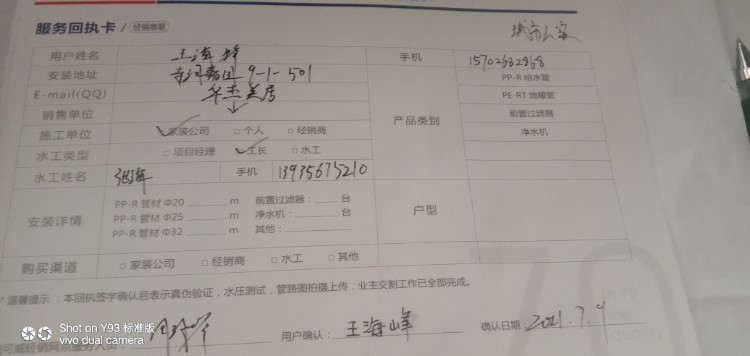 服务回执卡/经销商联
用户姓名 王海峰 手机 15702682868
安装地址 9-1-501 PP-R 给水管
E-mail(QQ) 华杰美居 PE-RT 地暖管
销售单位 产品类别 前置过滤器
施工单位 家装公司 □个人 □经销商 净水机
水工类型 □项目经理 工长 □水工
水工姓名 手机 13935675210
安装详情 户型
PP-R 管材 Φ20 m 前置过滤器: 台
PP-R 管材 Φ25 m 净水机: 台
PP-R 管材 Φ32 m 其他:
购买渠道 □家装公司 □经销商 □水工 □其他
*温馨提示:本回执签字确认后表示真伪验证,水压测试,管路图拍摄上传,业主交割工作已全部完成。
用户确认: 王海峰 确认日期 2021.7.9
可威经销网点服务人员:
Shot on Y93 标准版
vivo dual camera